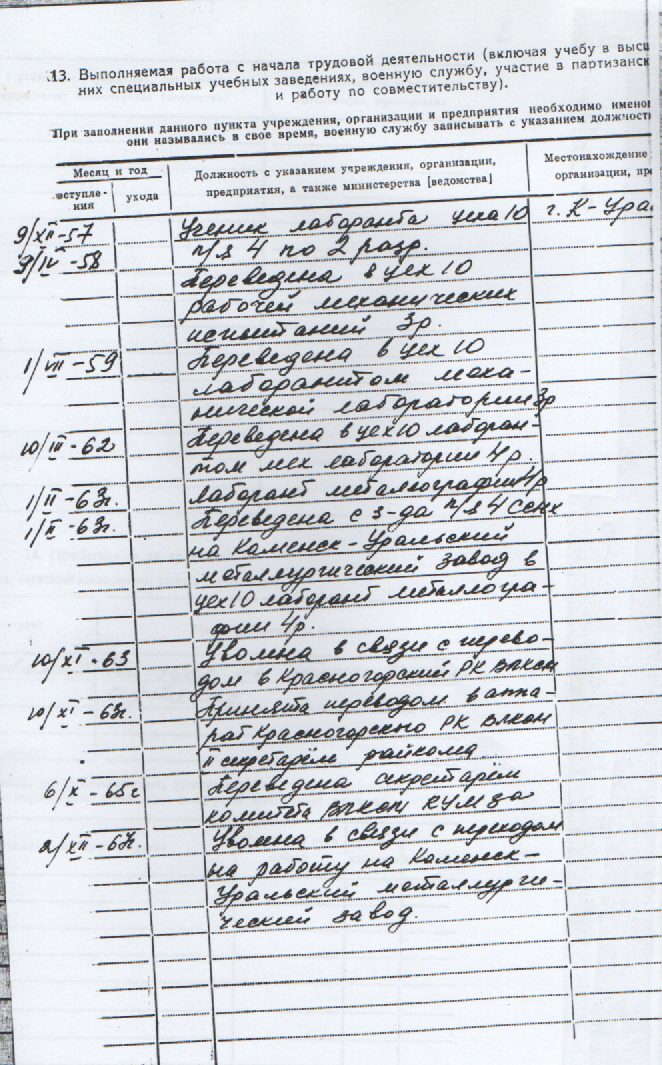 13. Выполняемая работа с начала трудовой деятельности (включая учебу в высш
них специальных учебных заведениях, военную службу, участие в партизанск
и работу по совместительству).
При заполнении данного пункта учреждения, организации и предприятия необходимо имено
они назывались в свое время, военную службу записывать с указанием должност
Месяц и год
вступле-
ния
ухода
Должность с указанием учреждения, организации,
предприятия, а также министерства [ведомства]
Местонахождение
организации, пре
9/XII-57 Ученик лаборанта цеха 10 г. К-Ура
п/я 4 по 2 разр.
9/IV-58 Переведена в цех 10
рабочей механических
испытаний 3р.
1/VII-59 Переведена в цех 10
лаборантом меха-
нической лаборатории 3р
10/III-62 Переведена в цех 10 лаборан-
том мех лаборатории 4р.
1/II-63г. лаборант металлографии 4р
1/II-63г. Переведена с з-да п/я 4
на Каменск-Уральский
металлургический завод в
цех 10 лаборант металлогра-
фии 4р.
10/XI-63 Уволена в связи с перево-
дом в Красногорский РК ВЛКСМ
10/XI-63г. Принята переводом в аппа-
рат Красногорского РК ВЛКСМ
II секретарём райкома
6/X-65г Переведена секретарём
комитета ВЛКСМ КУМЗа
2/XII-67г. Уволена в связи с переходом
на работу на Каменск-
Уральский металлурги-
ческий завод.